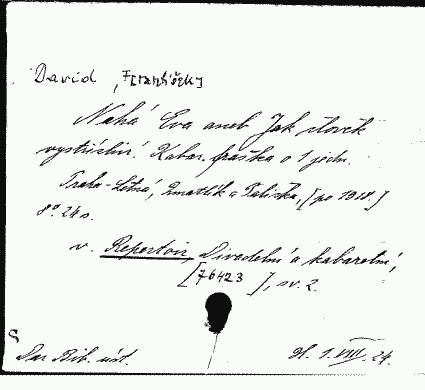 David, F[rantišek]
Nahá Eva aneb Jak člověk
vystřízliví. Kabar. fraška o 1 jedn.
Praha-Letná, Zmatlík a Palička, [po 1918.]
8°. 24 s.
v. Repertoir, Divadelní a kabaretní,
[76423], sv. 2.
Dar Bib. úst. 21. 1. VIII. 24.